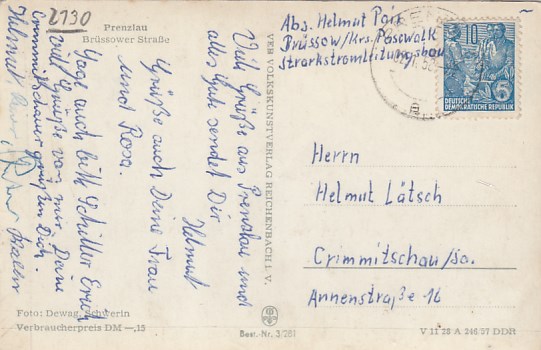 2730
Prenzlau
Brüssower Straße
Viele Grüße aus Prenzlau und
alles Gute sendet Dir
Helmut
Grüße auch Deine Frau
und Rosa.
Sage auch bitte Schiller Erich
viele Grüße von mir. Deine
Crimmitschauer grüßen Dich.
Helmut
Foto: Dewag, Schwerin
Verbraucherpreis DM —,15
VEB VOLKSKUNSTVERLAG REICHENBACH I. V.
Best.-Nr. 3/281
Abs. Helmut
Brüssow/Krs. Pasewalk
Starkstromleitungsbau
10
5
DEUTSCHE
DEMOKRATISCHE REPUBLIK
Herrn
Helmut Lätsch
Crimmitschau/Sa.
Annenstraße 16
V 11 28 A 246/57 DDR